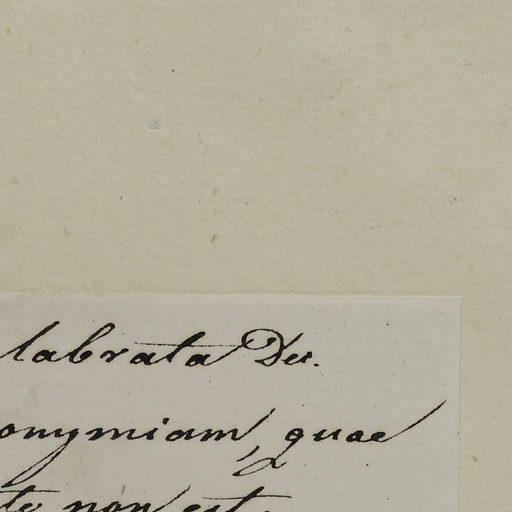 labrata Des.
onymiam, quae
te non est.